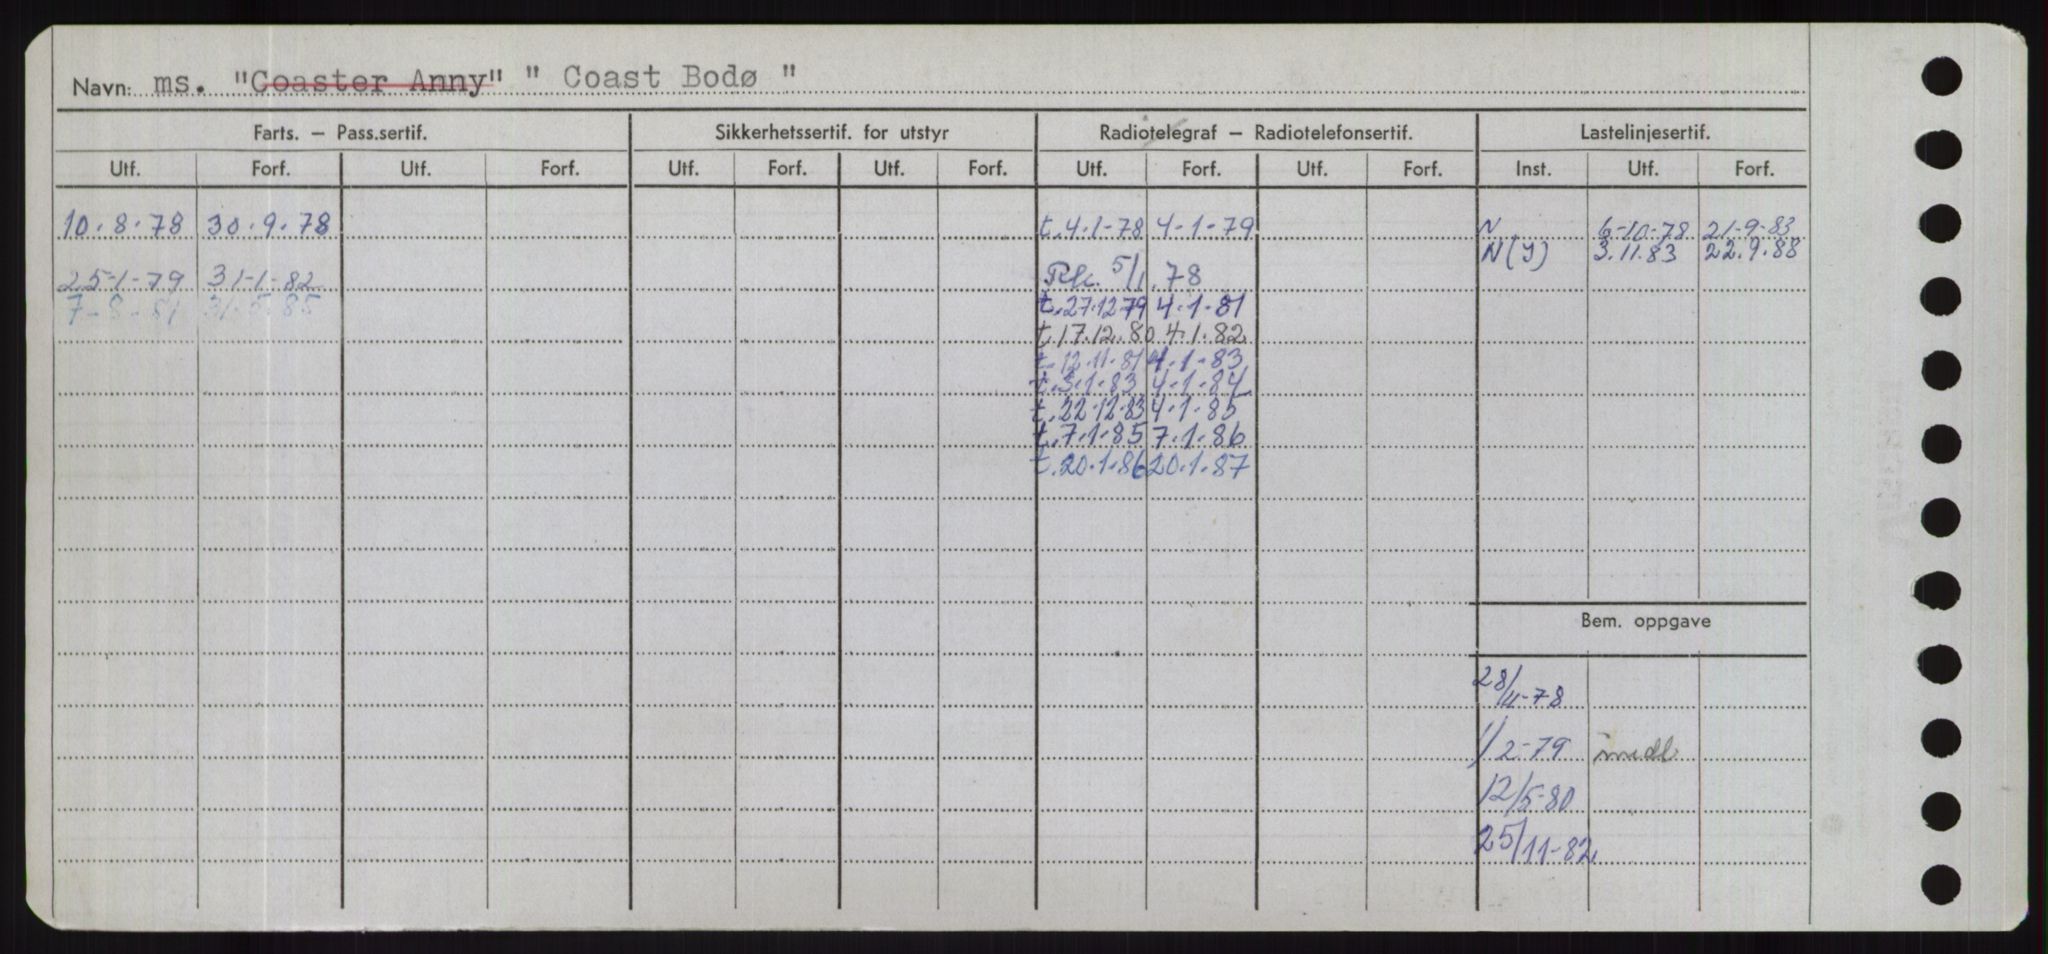 Navn: ms. "Coaster Anny" " Coast Bodø "
Farts. — Pass.sertif. Sikkerhetssertif. for utstyr Radiotelegraf — Radiotelefonsertif. Lastelinjesertif.
Utf. Forf. Utf. Forf. Utf. Forf. Utf. Forf. Utf. Forf. Utf. Forf. Inst. Utf. Forf.
10.8.78 30.9.78 t.4-1-78 4-1-79 N 6-10-78 21-9-83
N(I) 3.11.83 22.9.88
25-1-79 31-1-82 Rk. 5/1.78
7-8-81 31-5-85 t.27.12.79 4.1-81
t.17.12.80 4.1.82
t.12.11.81 4.1.83
t.3.1.83 4.1.84
t.22.12.83 4.1.85
t.7.1.85 7.1.86
t.20.1.86 20.1.87
Bem. oppgave
28/11-78
1/2-79 midl.
12/5-80
25/11-82